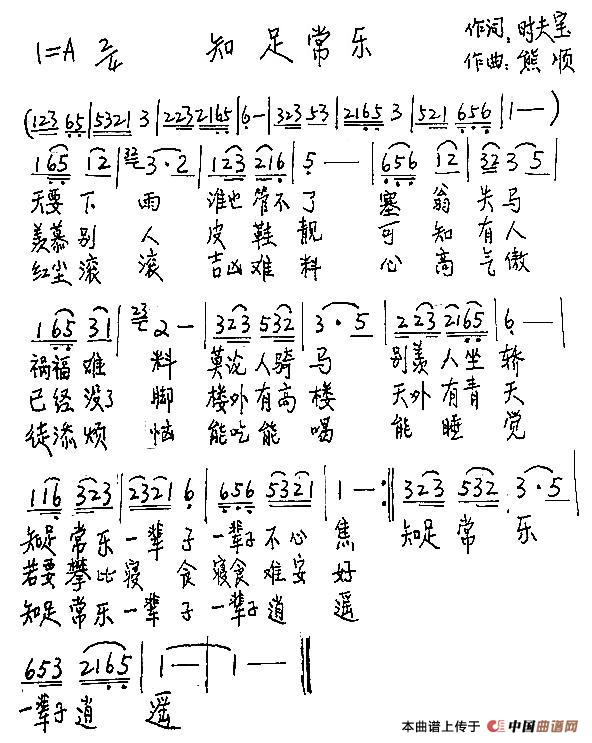 1=A 2/4 知足常乐 作词：时夫宝
作曲：熊顺
(123 65|5321 3|223 2165|6-|323 53|2165 3|521 656|1-)
165 12|3·2|123 216|5-|656 12|32 35|
天要下雨 谁也管不了 塞翁失马
羡慕别人 皮鞋靓 可知有人
红尘滚滚 吉凶难料 心高气傲
165 31|232-|323 532|3·5|223 2165|6-|
祸福难料 莫论人骑马 别羡人坐轿
已经没了脚 楼外有高楼 天外有青天
徒添烦恼 能吃能喝 能睡觉
116 323|2321 6|656 5321|1-:||323 532 3·5|
知足常乐一辈子一辈子不心焦 知足常乐
若要攀比寝食寝食难安好
知足常乐一辈子一辈子逍遥
653 2165|1-|1-||
一辈子逍遥
本曲谱上传于 中国曲谱网